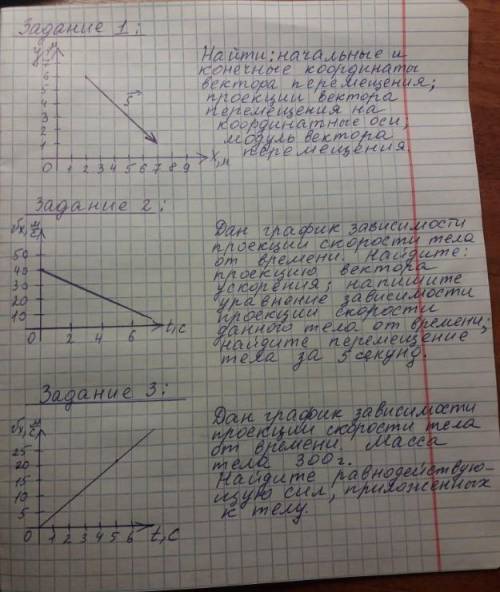 Задание 1:
y, м
7
6
5
4
3
2
1
0
1 2 3 4 5 6 7 8 9 X, м
S
Найти: начальные и
конечные координаты
вектора перемещения;
проекции вектора
перемещения на
координатные оси;
модуль вектора
перемещения.
Задание 2:
υx, м/с
50
40
30
20
10
0
2 4 6 t, с
Дан график зависимости
проекции скорости тела
от времени. Найдите:
проекцию вектора
ускорения; напишите
уравнение зависимости
проекции скорости
данного тела от времени;
найдите перемещение
тела за 5 секунд.
Задание 3:
υx, м/с
25
20
15
10
5
0
1 2 3 4 5 6 t, с
Дан график зависимости
проекции скорости тела
от времени. Масса
тела 300 г.
Найдите равнодействую-
щую сил, приложенных
к телу.